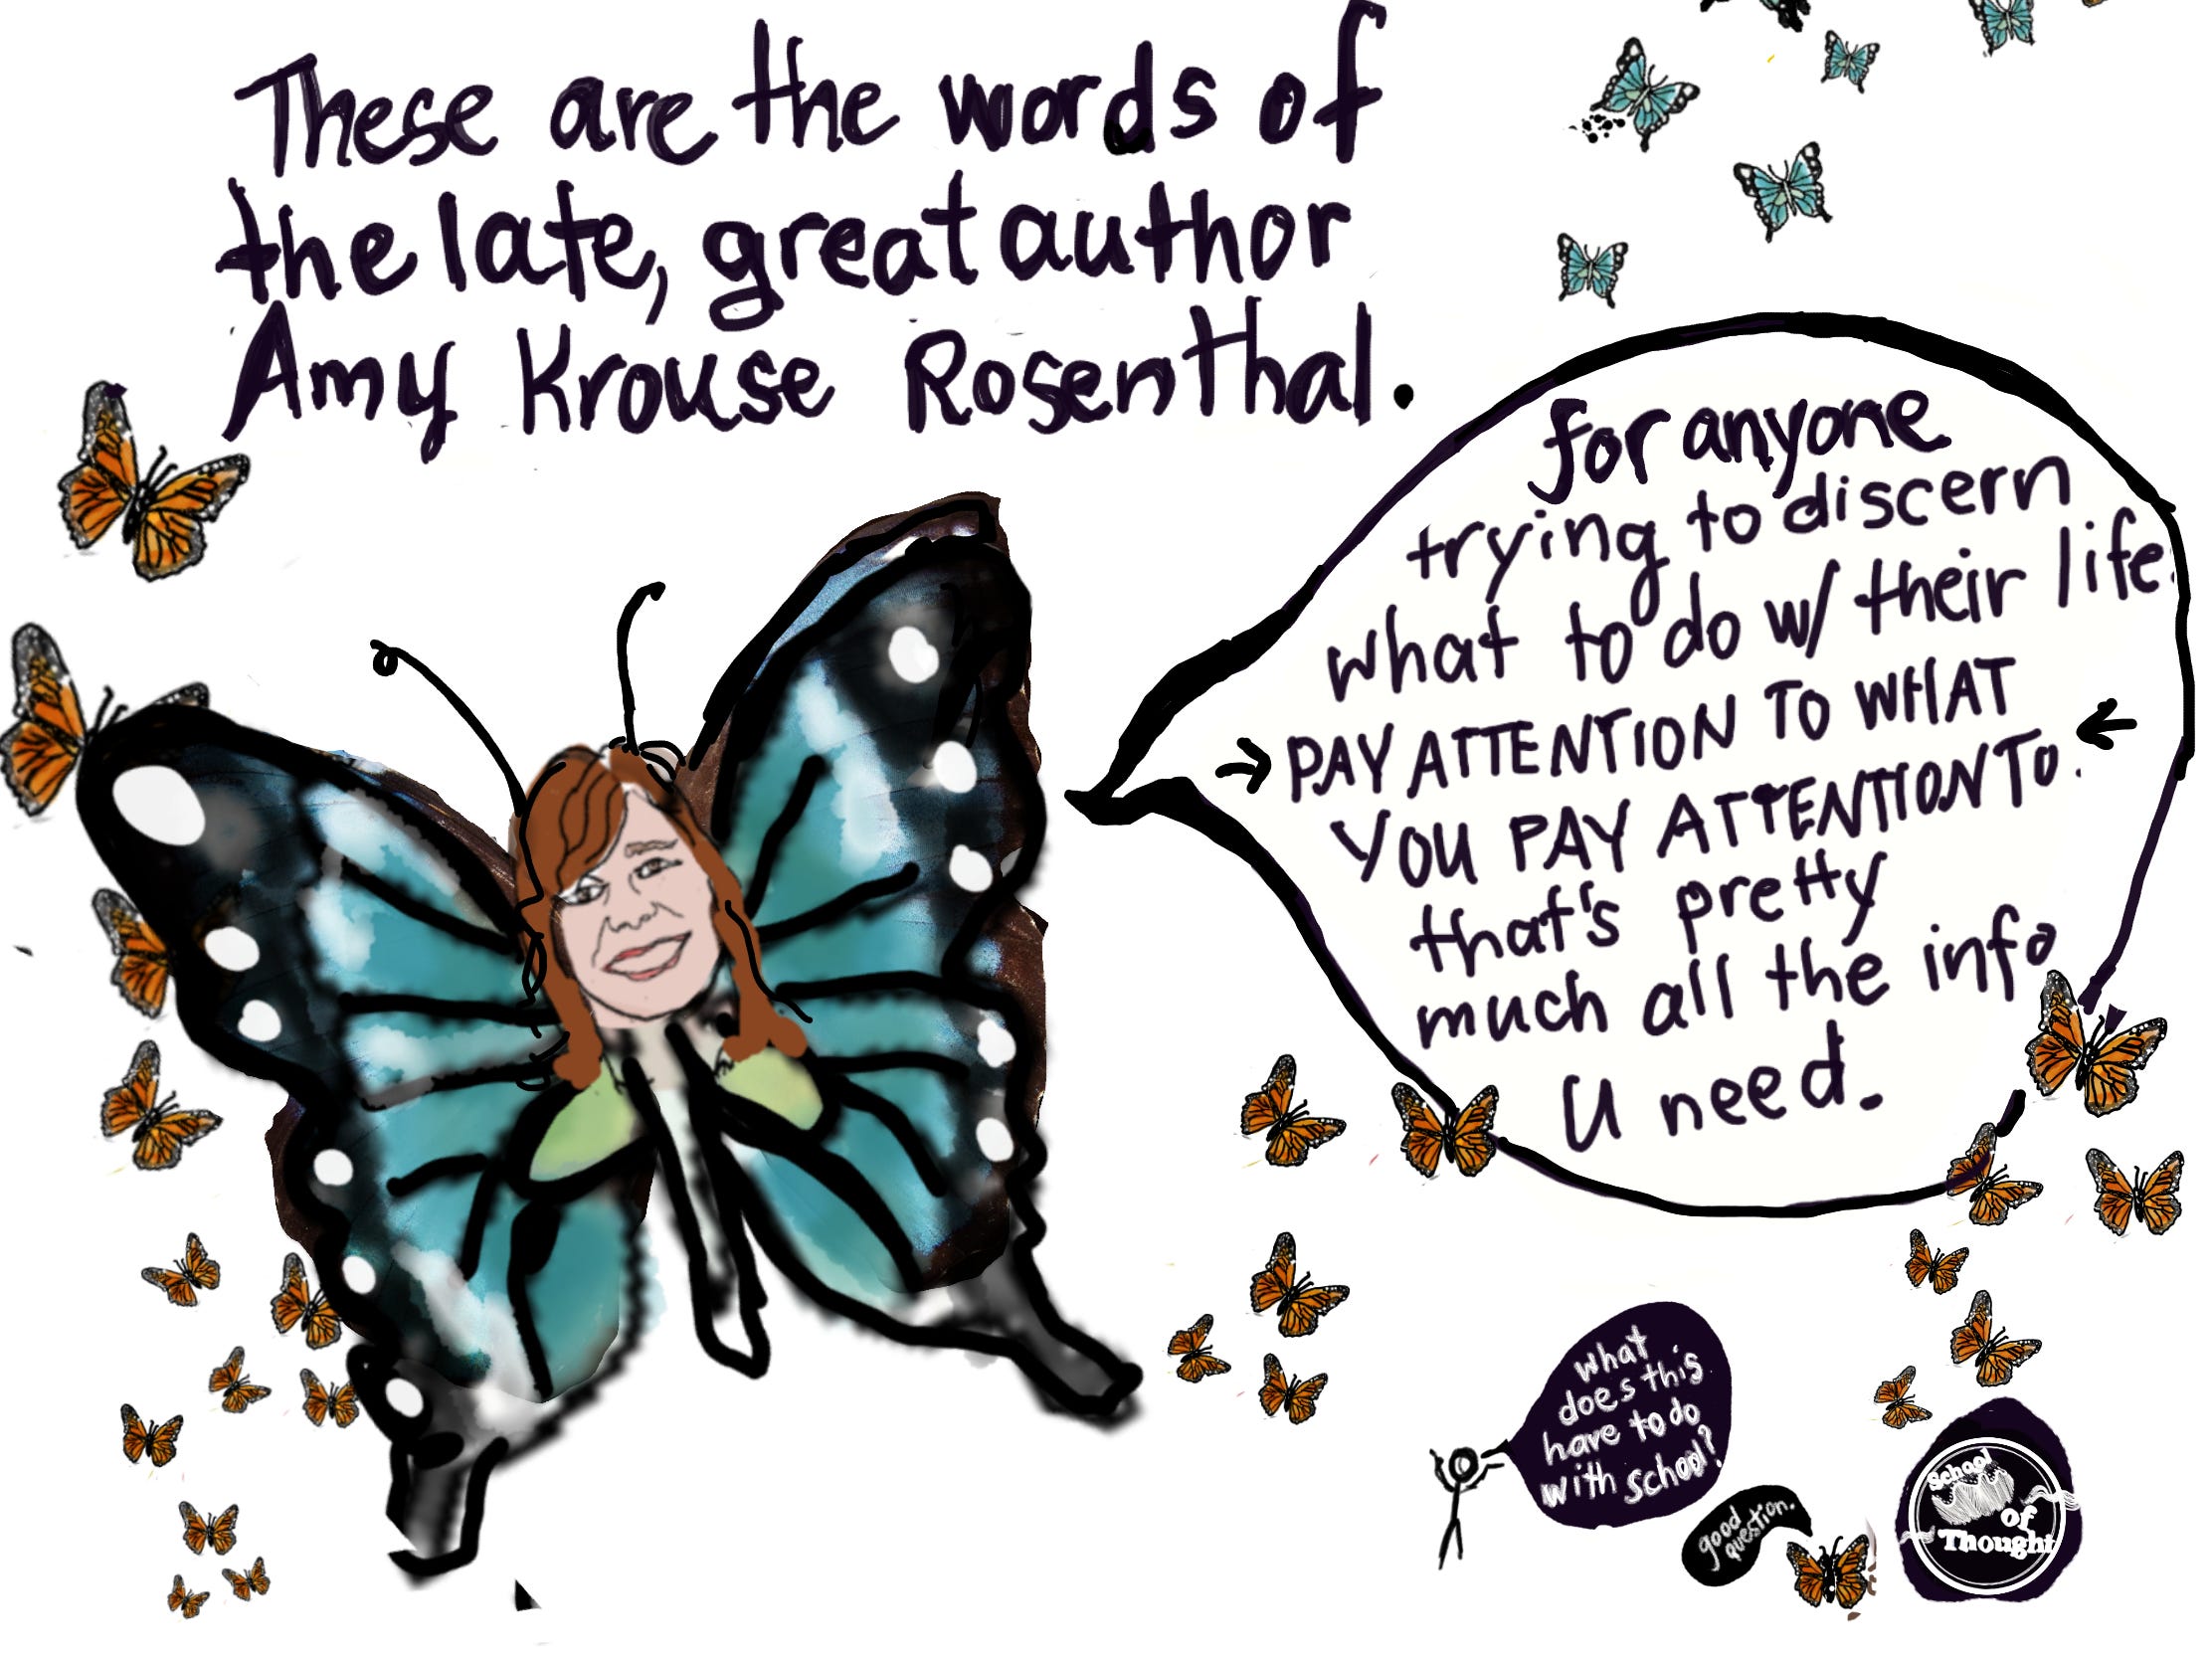 These are the words of
the late, great author
Amy Krouse Rosenthal.
for anyone
trying to discern
what to do w/ their life.
PAY ATTENTION TO WHAT
YOU PAY ATTENTION TO.
that's pretty
much all the info
U need.
what
does this
have to do
with school?
good
question.
School
of
Thought